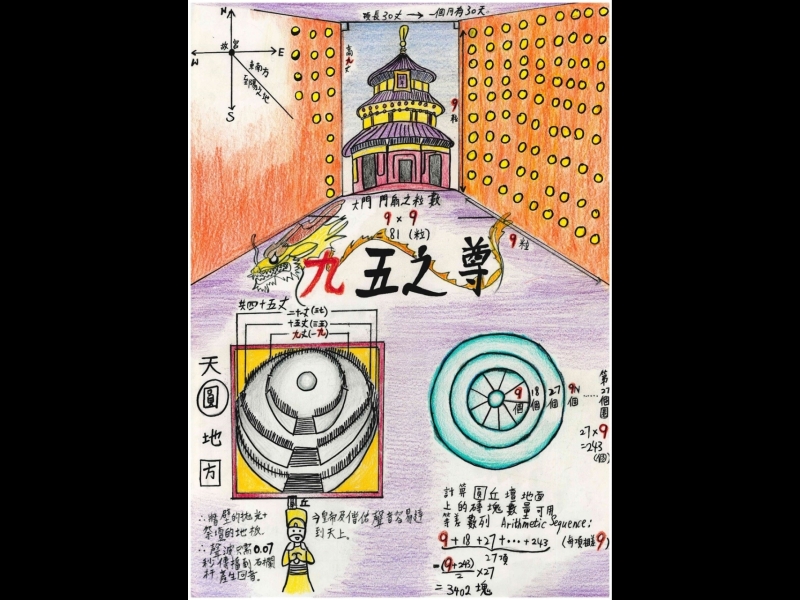 N
W
E
S
故宮
東南方
至陽之地
頂長30丈 → 一個月為30天
高九丈
9粒
大門門扇之粒數
9 × 9
= 81 (粒)
9粒
九五之尊
共四十五丈
二十一丈(三七)
十五丈(三五)
九丈(一九)
天
圓
地
方
圓丘
∴牆壁的抛光+
祭壇的地板.
∴聲波只需0.07
秒傳播到石欄
杆產生回音。
令皇帝及僧侶聲音容易達
到天上。
9個
18個
27個
9N個
第27個圓
27×9
=243
(個)
計算圓丘壇地面
上的磚塊數量可用
等差數列 Arithmetic Sequence:
9+18+27+…+243
(每項相差9)
27項
=(9+243)/2 ×27
=3402 塊